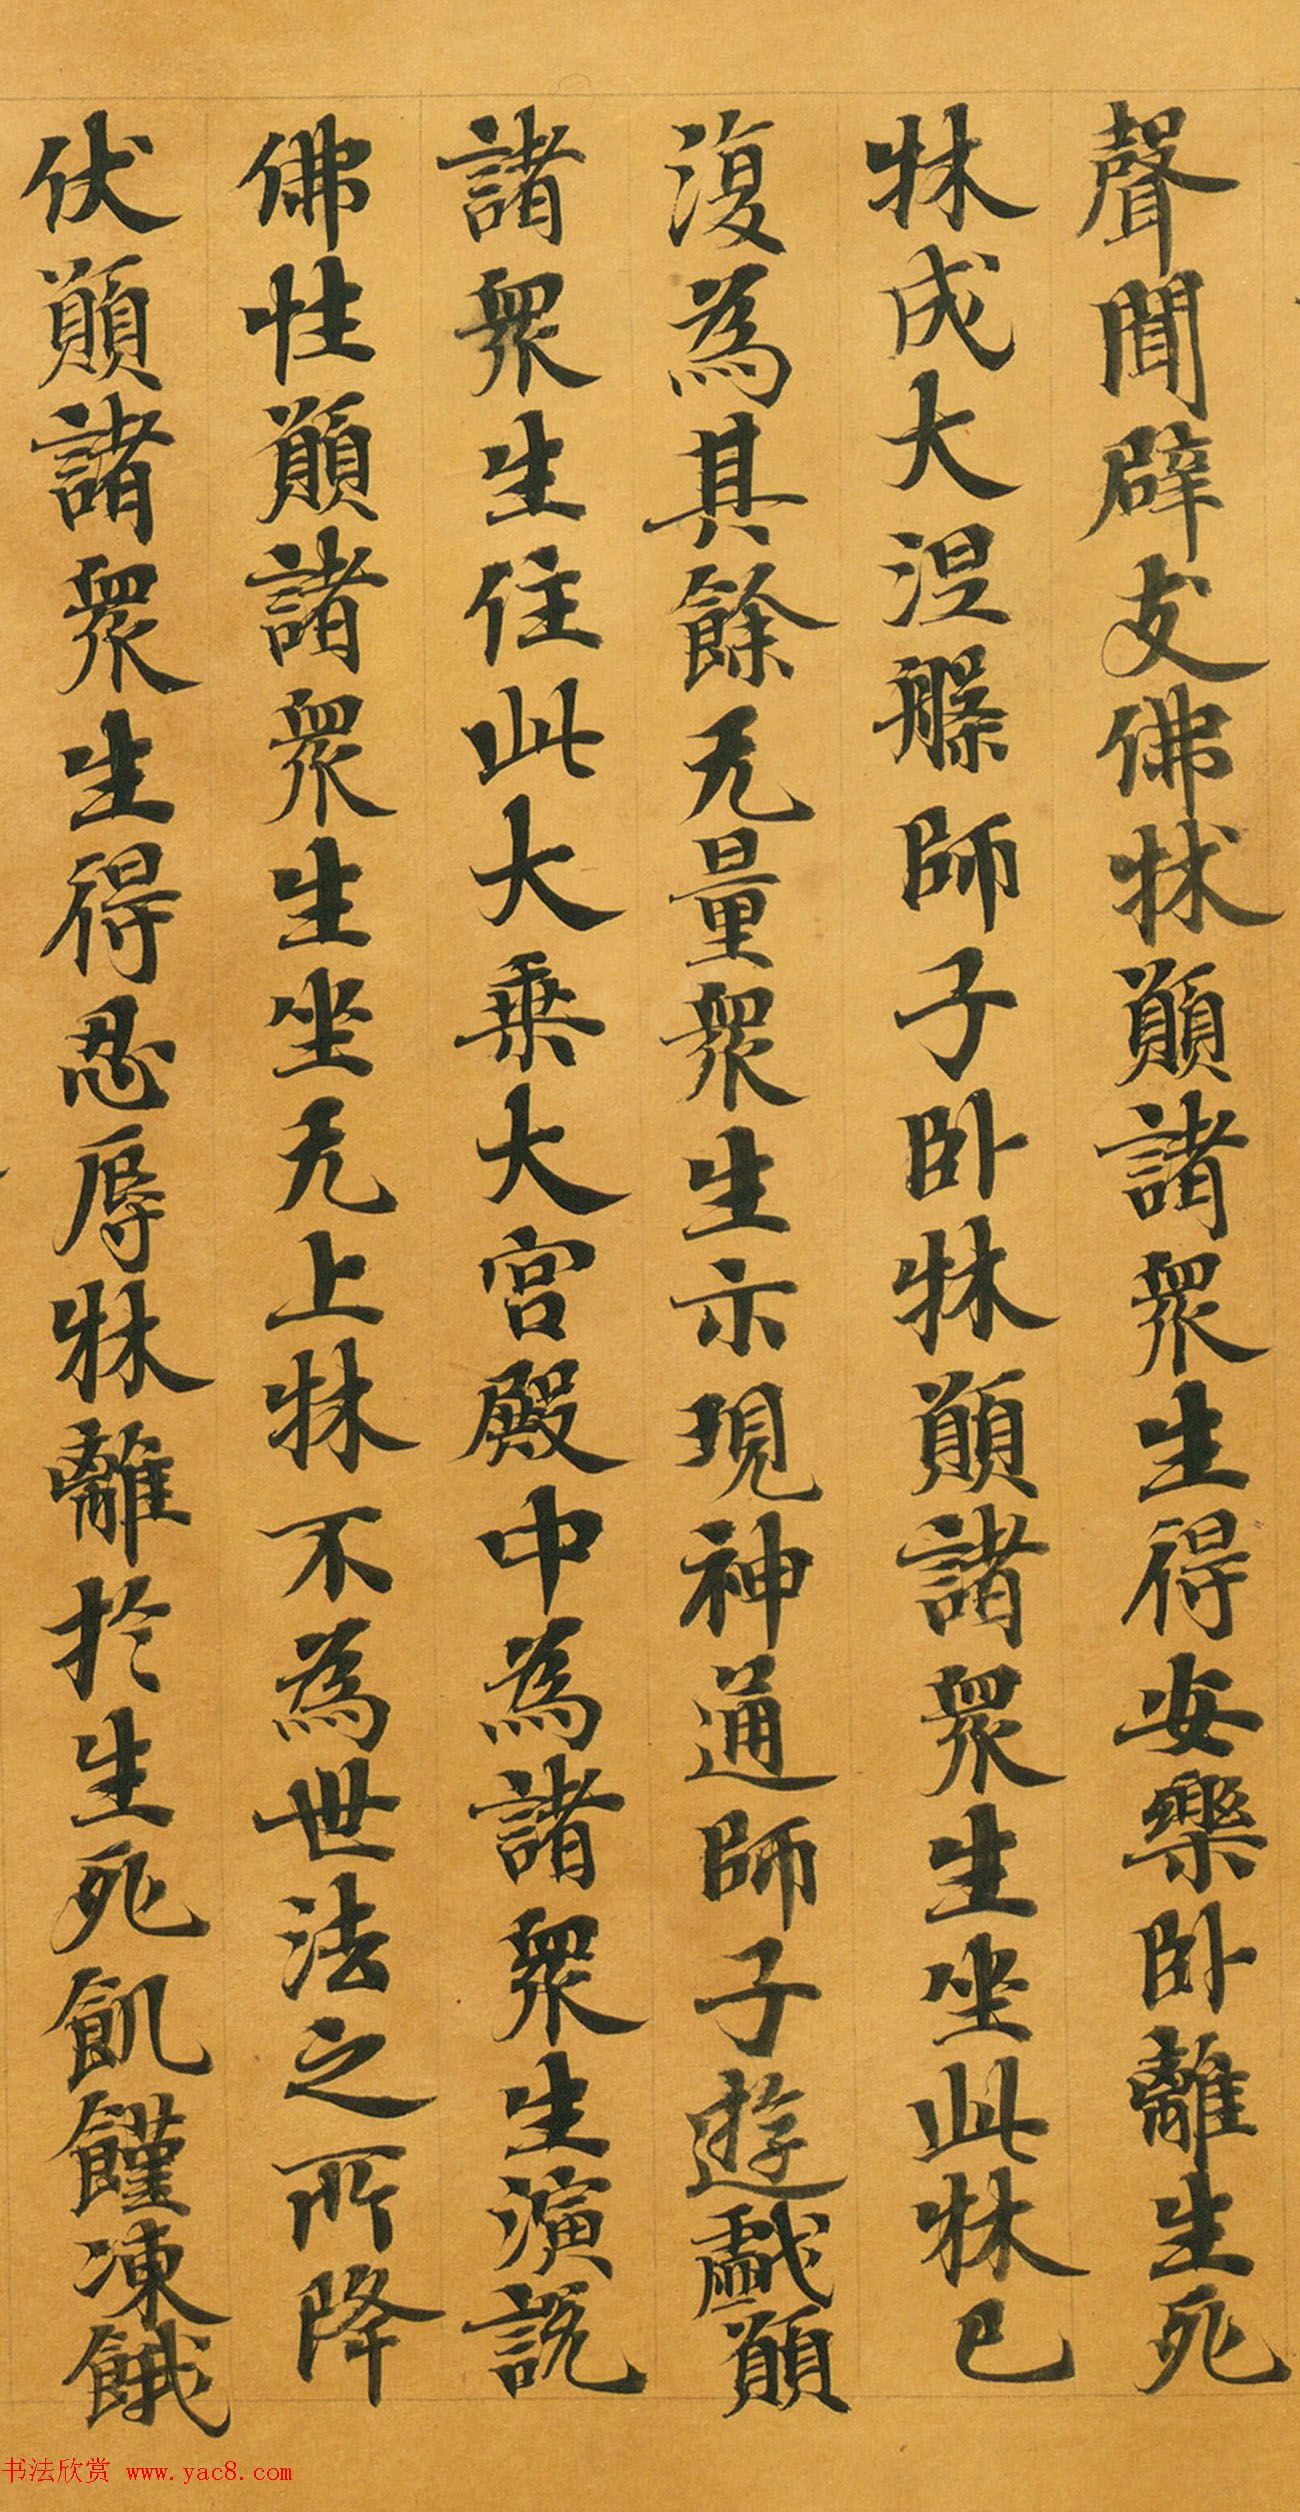 聲聞辟支佛牀願諸衆生得安樂卧離生死
牀成大涅槃師子卧牀願諸衆生坐此牀已
復為其餘无量衆生示現神通師子遊戲願
諸衆生住此大乗大宮殿中為諸衆生演說
佛性願諸衆生坐无上牀不為世法之所降
伏願諸衆生得忍辱牀離於生死飢饉凍餓
书法欣赏 www.yac8.com